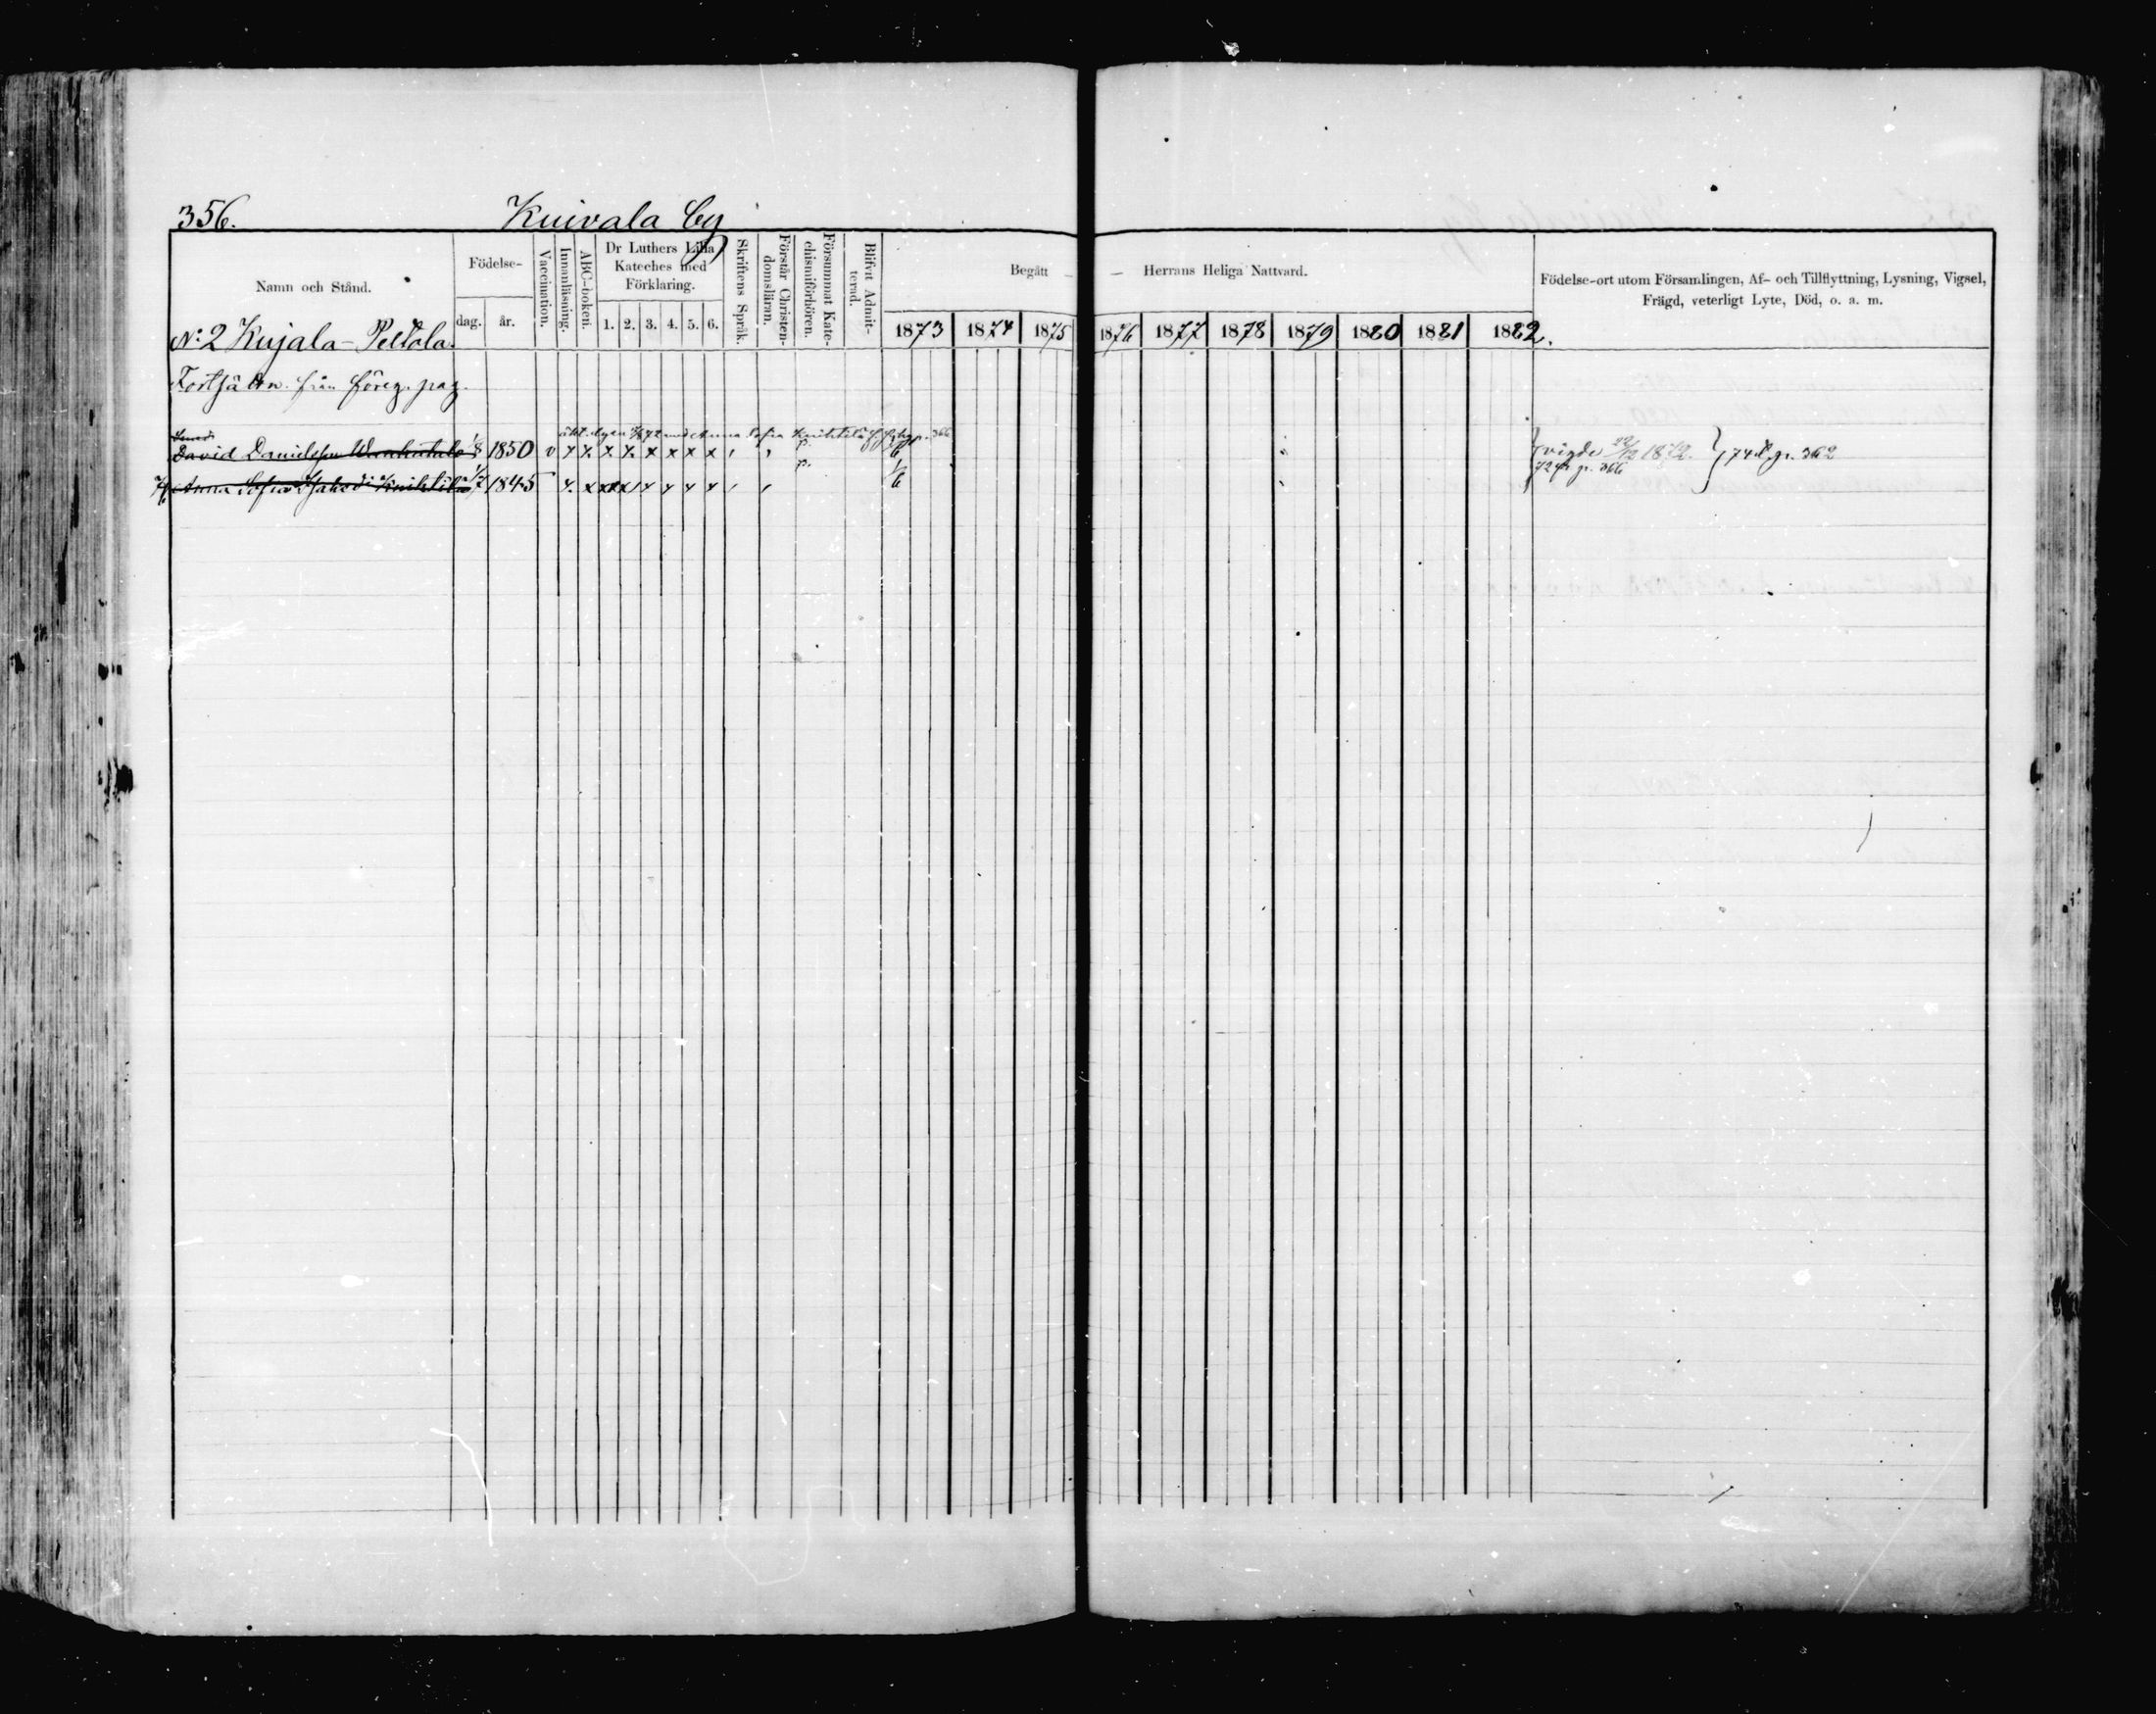 356.
Kuivala by
Namn och Stånd.
Födelse-
dag. år.
Vaccination.
Innanläsning.
ABC-boken.
Dr Luthers Lilla
Kateches med
Förklaring.
1. 2. 3. 4. 5. 6.
Skriftens Språk.
Förstår Christen-
domsläran.
Försummat Kate-
chismiförhören.
Blifvit Admit-
terad.
Begått — — Herrans Heliga Nattvard.
1873 1874 1875 1876 1877 1878 1879 1880 1881 1882.
Födelse-ort utom Församlingen, Af- och Tillflyttning, Lysning, Vigsel,
Frägd, veterligt Lyte, Död, o. a. m.
N:2 Kujala-Peltola.
från föreg. pag.
Anna Sofia p. 366
David Danielsson 1850 v x x x x x x x x
vigde 22/12 1872. 74 p. 362
72 fr p. 366
Anna Sofia 1845 1/6